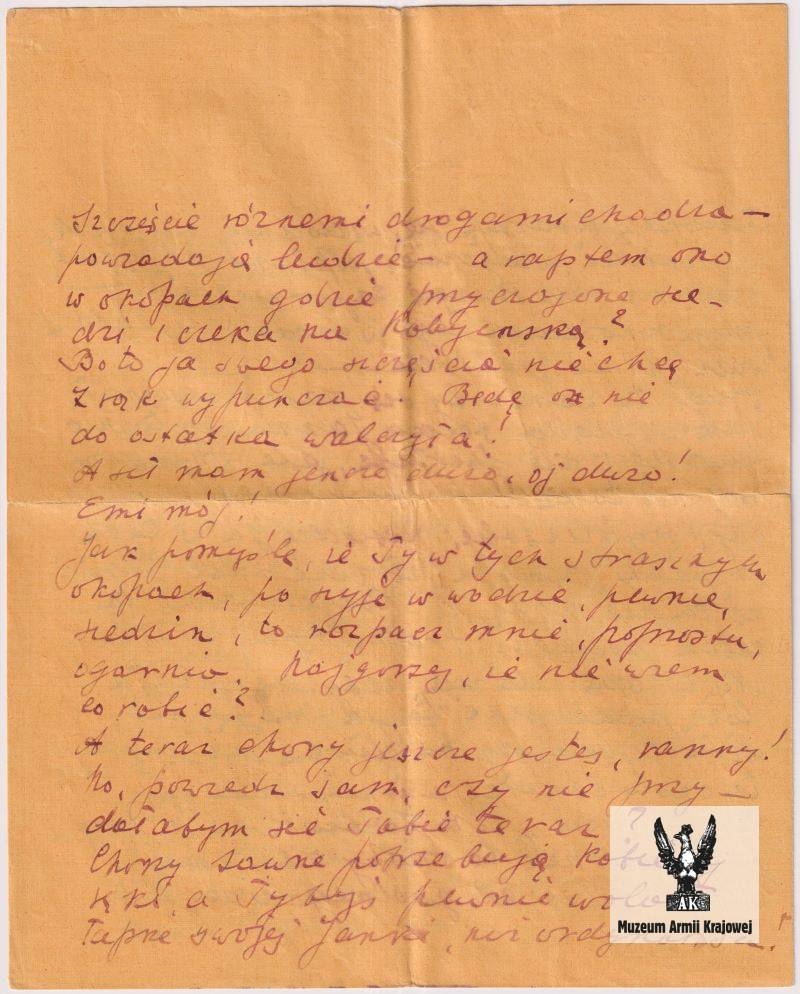 Szczęście różnemi drogami chodzą —
powiadają ludzie — a raptem ono
w okopach gdzieś przyczajone sie-
dzi i czeka na Kobyenską?
Bo to ja swego szczęścia nie chcę
z rąk wypuszczać. Będę oń nie
do ostatka walczyła!
A sił mam jeszcze dużo, oj dużo!
Emi mój!
Jak pomyślę, że Ty w tych strasznych
okopach, po szyję w wodzie, pewnie,
siedzisz, to rozpacz mnie, poprostu,
ogarnia. Najgorzej, że nie wiem
co robić?
A teraz chory jeszcze jesteś, ranny!
No, powiedz sam, czy nie przy-
dałabym się Tobie teraz?
Chorzy zawsze potrzebują
ręki, a Tybyś pewnie
łapkę swojej Janki, niż
AK
Muzeum Armii Krajowej